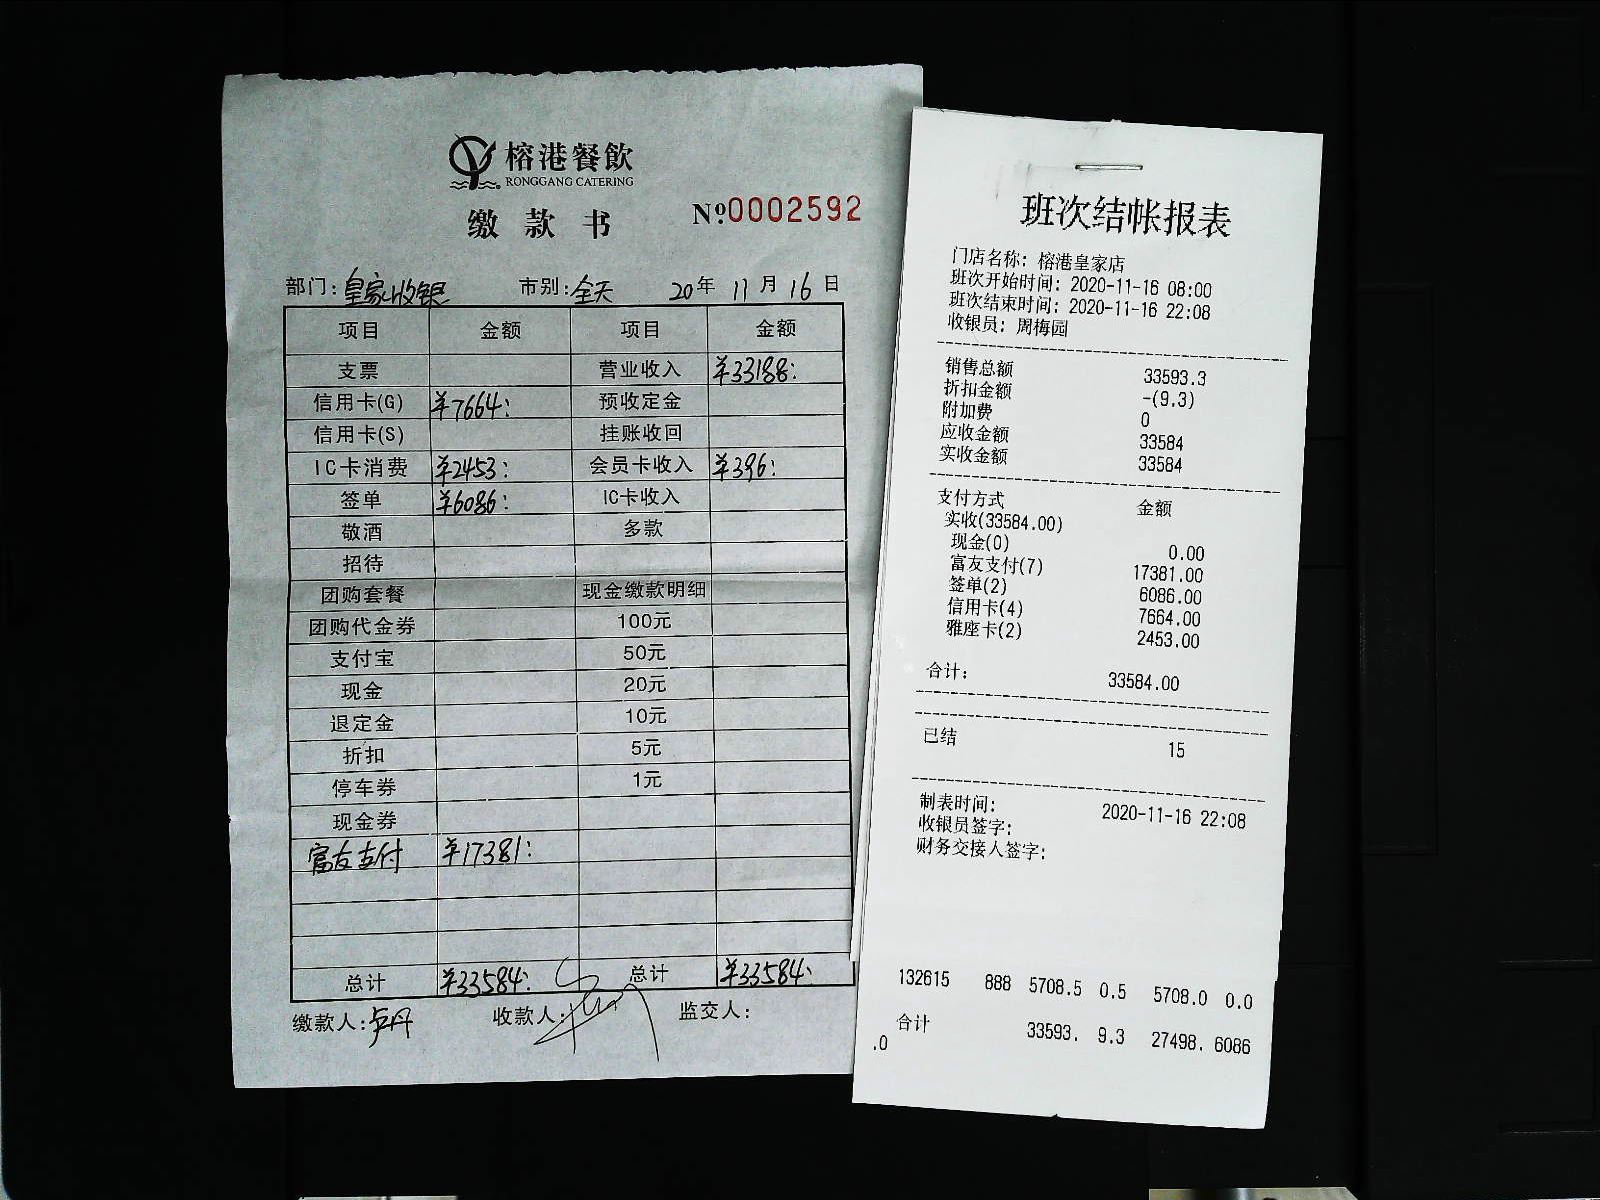 榕港餐飲
RONGGANG CATERING
缴款书
Nº0002592
部门:皇家收银 市别:全天 20年 11月 16日
项目 金额 项目 金额
支票 营业收入 ¥33188:
信用卡(G) ¥7664: 预收定金
信用卡(S) 挂账收回
IC卡消费 ¥2453: 会员卡收入 ¥396:
签单 ¥6086: IC卡收入
敬酒 多款
招待
团购套餐 现金缴款明细
团购代金券 100元
支付宝 50元
现金 20元
退定金 10元
折扣 5元
停车券 1元
现金券
富友支付 ¥17381:
总计 ¥33584: 总计 ¥33584:
缴款人:卢丹 收款人: 监交人:
班次结帐报表
门店名称: 榕港皇家店
班次开始时间: 2020-11-16 08:00
班次结束时间: 2020-11-16 22:08
收银员: 周梅园
销售总额 33593.3
折扣金额 -(9.3)
附加费 0
应收金额 33584
实收金额 33584
支付方式 金额
实收(33584.00)
现金(0) 0.00
富友支付(7) 17381.00
签单(2) 6086.00
信用卡(4) 7664.00
雅座卡(2) 2453.00
合计: 33584.00
已结 15
制表时间: 2020-11-16 22:08
收银员签字:
财务交接人签字:
132615 888 5708.5 0.5 5708.0 0.0
合计 33593. 9.3 27498. 6086
.0